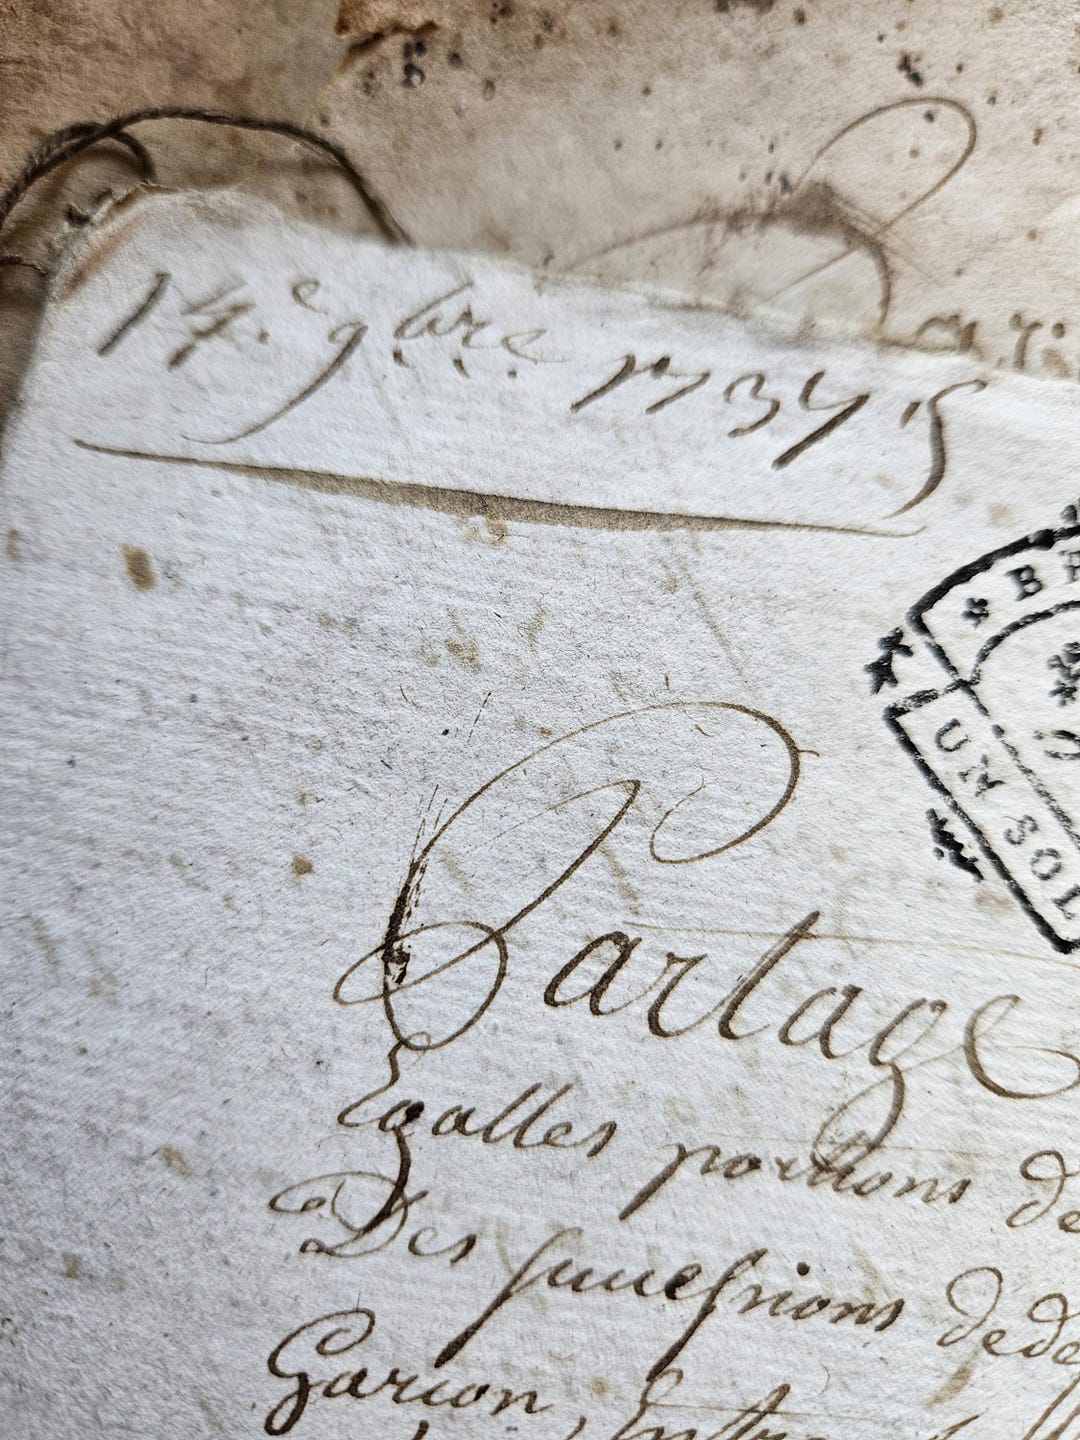 14.e 9bre. 1734
Partage
Egalles portions de
Des successions dede
Garcon, Entre
* BR
UN SOL